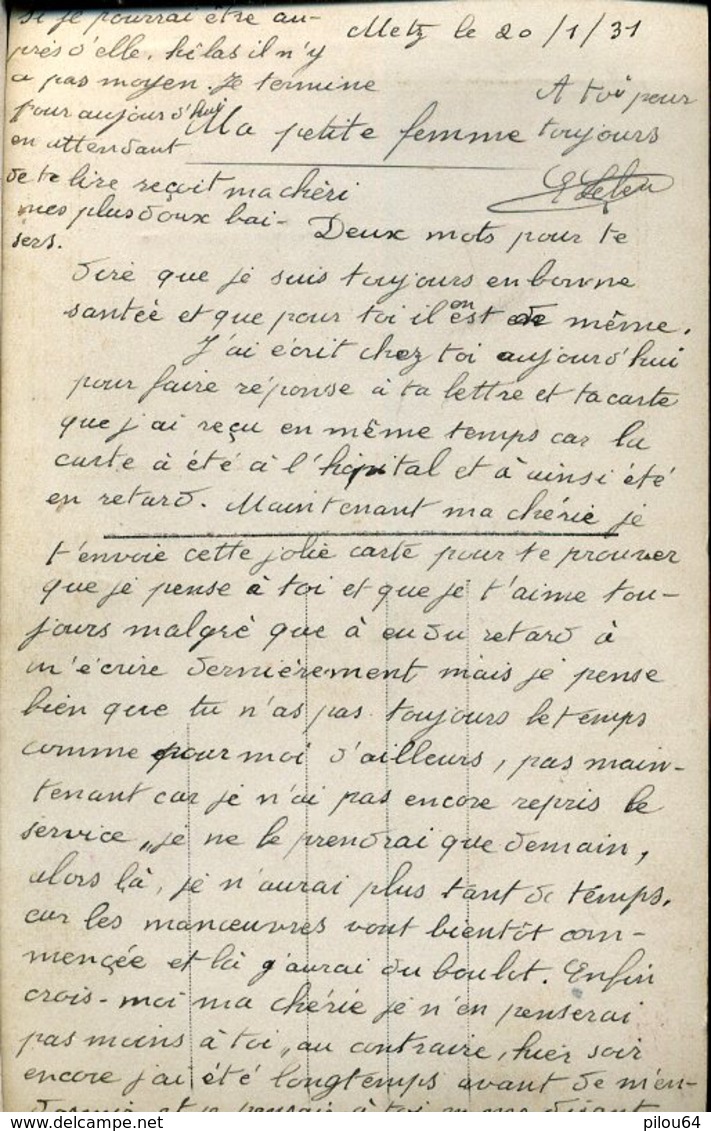 Metz le 20/1/31
Ma petite femme
Deux mots pour te
dire que je suis toujours en bonne
santée et que pour toi il en est de même.
J'ai écrit chez toi aujourd'hui
pour faire réponse à ta lettre et ta carte
que j'ai reçu en même temps car la
carte à été à l'hôpital et à ainsi été
en retard. Maintenant ma chérie je
t'envoie cette jolie carte pour te prouver
que je pense à toi et que je t'aime tou-
jours malgré que à eu du retard à
m'écrire dernièrement mais je pense
bien que tu n'as pas toujours le temps
comme pour moi d'ailleurs, pas main-
tenant car je n'ai pas encore repris le
service, je ne le prendrai que demain,
alors là, je n'aurai plus tant de temps.
car les manœuvres vont bientôt com-
mençée et là j'aurai du boulot. Enfin
crois-moi ma chérie je n'en penserai
pas moins à toi, au contraire, hier soir
encore j'ai été longtemps avant de m'en-
dormir et je pensais à toi me disant
si je pourrai être au-
près d'elle. hélas il n'y
a pas moyen. Je termine
pour aujourd'hui
en attendant
de te lire reçoit ma chéri
mes plus doux bai-
sers.
A toi pour
toujours